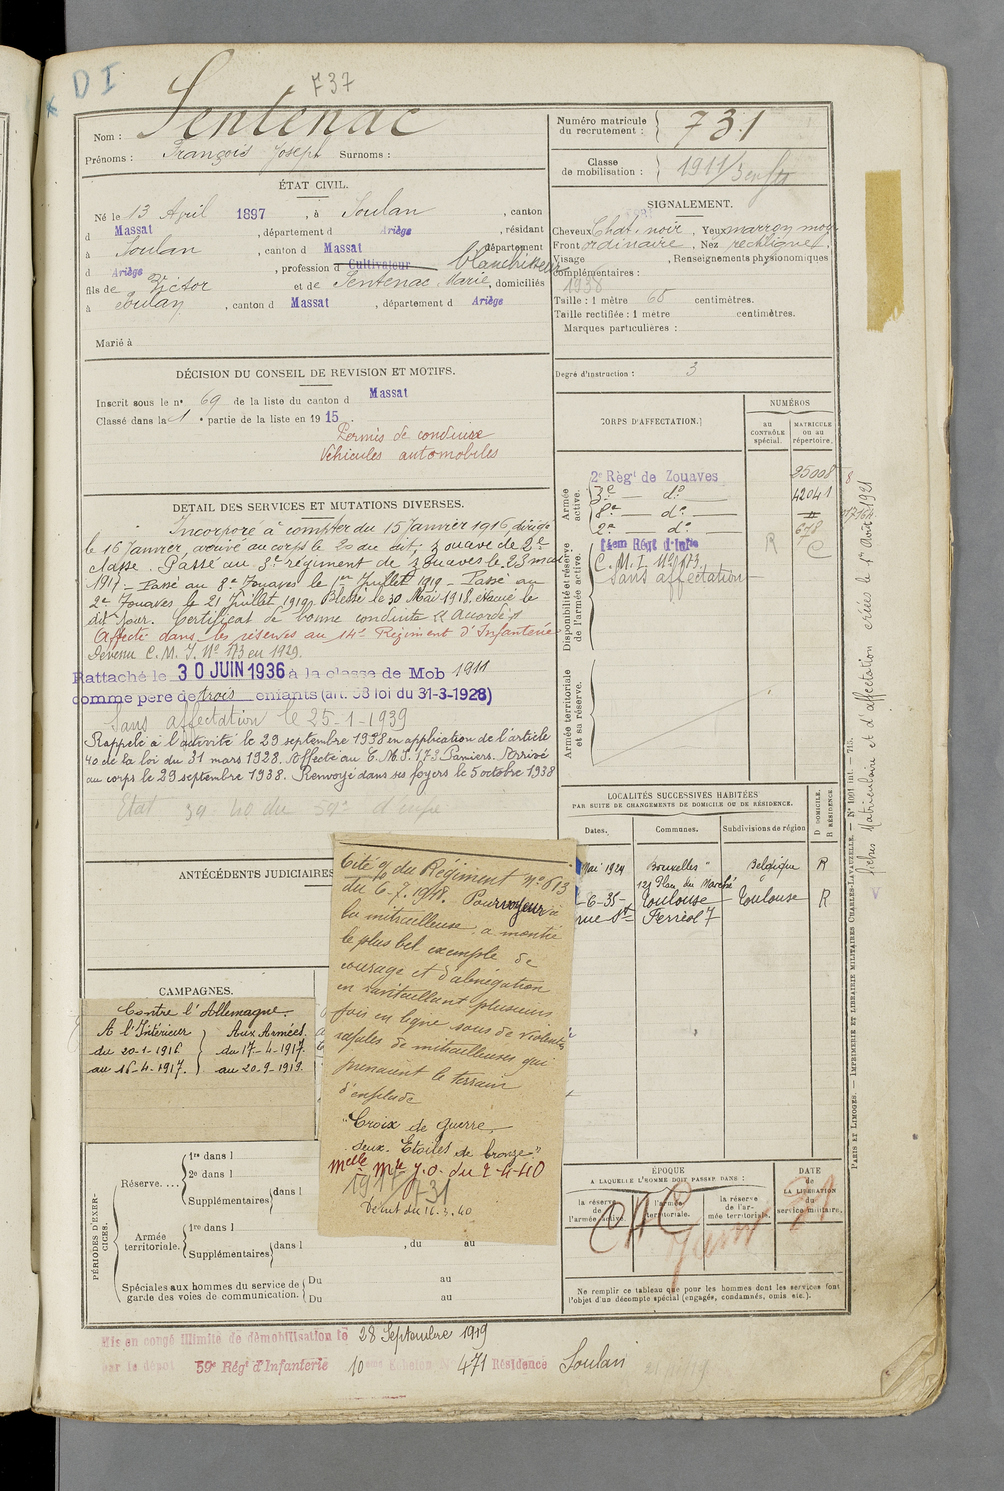 D I
737
Nom : Sentenac
Prénoms : François Joseph Surnoms :
ÉTAT CIVIL.
Né le 13 April 1897, à Soulan, canton
d Massat, département d Ariège, résidant
à Soulan, canton d Massat département
d Ariège, profession d Cultivateur blanchisseur
fils de Victor et de Sentenac Marie, domiciliés
à Soulan, canton d Massat, département d Ariège
Marié à
DÉCISION DU CONSEIL DE REVISION ET MOTIFS.
Inscrit sous le n° 69 de la liste du canton d Massat
Classé dans la 1e partie de la liste en 1915.
Permis de conduire
Véhicules automobiles
DETAIL DES SERVICES ET MUTATIONS DIVERSES.
Incorporé à compter du 15 Janvier 1916, dirigé
le 16 Janvier, arrivé au corps le 20 du dit, zouave de 2e
classe. Passé au 3e régiment de zouaves le 23 mai
1917. Passé au 8e Zouaves le 1er Juillet 1919 - Passé au
2e Zouaves le 21 Juillet 1919. Blessé le 30 Mai 1918. évacué le
dit jour. Certificat de bonne conduite "Accordé"
Affecté dans les réserves au 14e Régiment d'Infanterie
Devenu C. M. I. N° 173 en 1929.
Rattaché le 30 JUIN 1936 à la classe de Mob 1911
comme père de trois enfants (art. 58 loi du 31-3-1928)
Sans affectation le 25-1-1939
Rappelé à l'activité le 29 septembre 1938 en application de l'article
40 de la loi du 31 mars 1928. Affecté au C. M. I. 173 Pamiers. Arrivé
au corps le 29 septembre 1938. Renvoyé dans ses foyers le 5 octobre 1938
Etat 39 40 du
ANTÉCÉDENTS JUDICIAIRES
CAMPAGNES.
Contre l'Allemagne
A l'Intérieur } Aux Armées.
du 20-1-1916 } du 17-4-1917.
au 16-4-1917. } au 20-9-1919.
Cité O/ du Régiment N° 613
du 6-7-1918. Pourvoyeur à
la mitrailleuse, a montré
le plus bel exemple de
courage et d'abnégation
en ravitaillant plusieurs
fois en ligne sous de violentes
rafales de mitrailleuses qui
prenaient le terrain
d'enfilade
"Croix de guerre
deux Etoiles de bronze"
Melle Mre J.O. du 2-4-40
1917 731
Décret du 16.3.40
PÉRIODES D'EXERCICES.
Réserve....
1re dans l
2e dans l
Supplémentaires dans l
Armée territoriale.
1re dans l
Supplémentaires dans l , du au
Spéciales aux hommes du service de garde des voies de communication.
Du au
Du au
Numéro matricule du recrutement : 731
Classe de mobilisation : 1911
SIGNALEMENT.
Cheveux Chat. noir, Yeux marron
Front ordinaire, Nez rectiligne
Visage , Renseignements physionomiques
complémentaires :
1938
Taille : 1 mètre 68 centimètres.
Taille rectifiée : 1 mètre centimètres.
Marques particulières :
Degré d'instruction : 3
CORPS D'AFFECTATION.
NUMÉROS
au CONTRÔLE spécial.
MATRICULE ou au répertoire.
Armée active.
2e Régt de Zouaves 25008
3e — do — 42041
8e — do — "
2e do 678
Disponibilité et réserve de l'armée active.
14em Régt d'Infie
C. M. I. N° 173 R C
Sans affectation
Armée territoriale et sa réserve.
LOCALITÉS SUCCESSIVES HABITÉES
PAR SUITE DE CHANGEMENTS DE DOMICILE OU DE RÉSIDENCE.
Dates. Communes. Subdivisions de région D DOMICILE. R RÉSIDENCE.
Mai 1924 Bruxelles Belgique R
Marché
-6-35- Toulouse Toulouse R
rue St Ferréol 7
ÉPOQUE
A LAQUELLE L'HOMME DOIT PASSER DANS :
la réserve de l'armée active.
l'armée territoriale.
la réserve de l'armée territoriale.
DATE de LA LIBÉRATION du service militaire.
Ne remplir ce tableau que pour les hommes dont les services font l'objet d'un décompte spécial (engagés, condamnés, omis etc.).
fiches Matriculaire et d'affectation créées le 1er Août 1921
PARIS ET LIMOGES. — IMPRIMERIE ET LIBRAIRIE MILITAIRES CHARLES-LAVAUZELLE. — N° 1001 int. — 715.
Mis en congé illimité de démobilisation le 28 Septembre 1919
par le dépôt 59e Régt d'Infanterie 10eme Echelon N° 471 Résidence Soulan